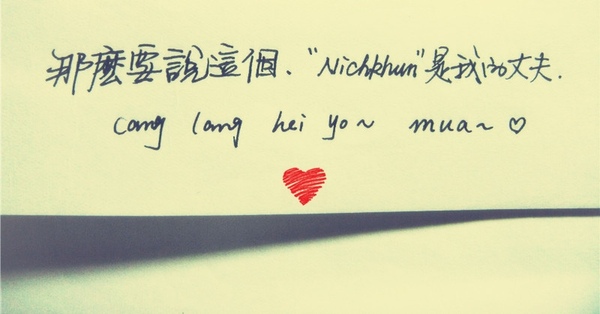 那麼要說這個、"Nichkhun"是我的丈夫.
Cang lang hei yo~ mua~ ♡